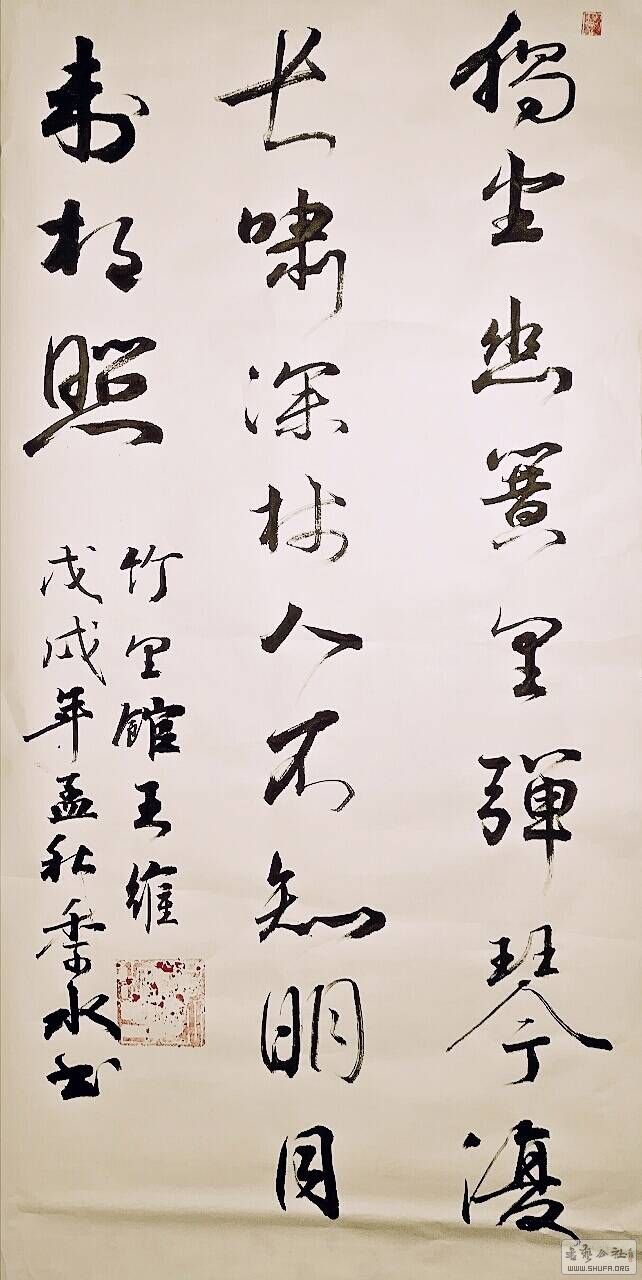 獨坐幽篁里彈琴復
長嘯深林人不知明月
来相照
竹里館王維
戊戌年孟秋季水书
WWW.SHUFA.ORG